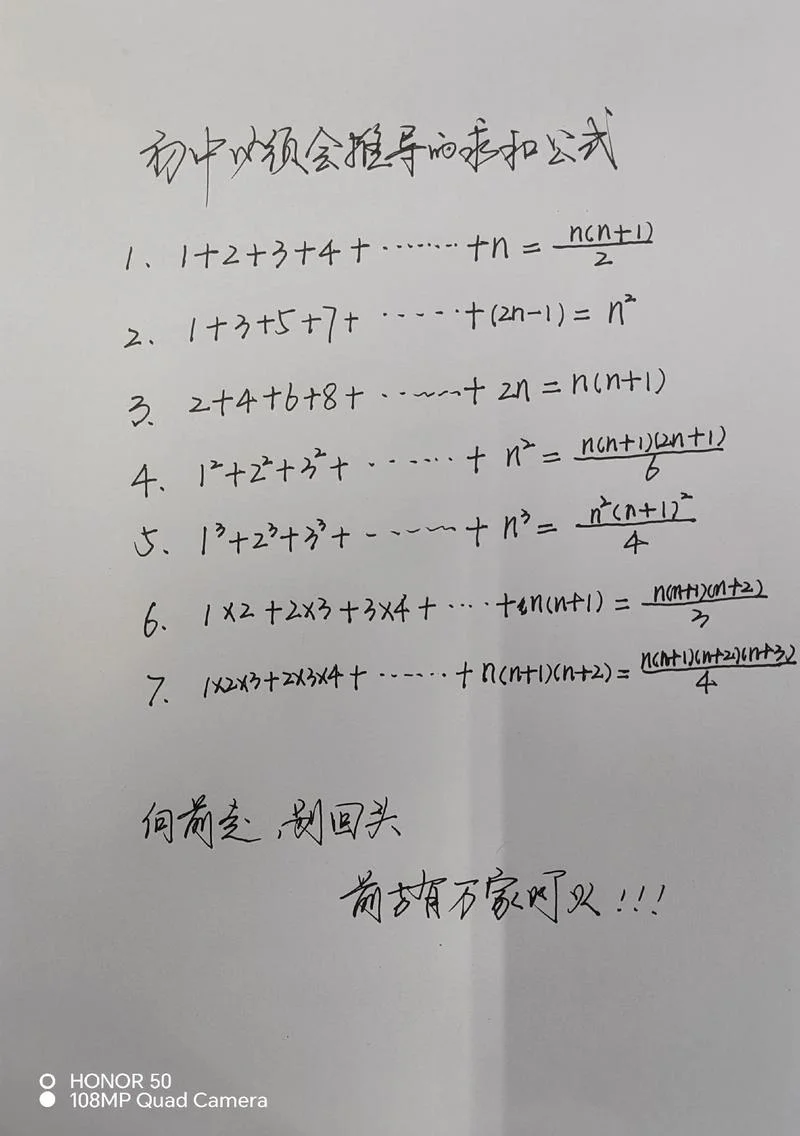 初中必须会推导的求和公式
1. 1+2+3+4+·······+n=n(n+1)/2
2. 1+3+5+7+·····+(2n-1)=n²
3. 2+4+6+8+······+2n=n(n+1)
4. 1²+2²+3²+······+n²=n(n+1)(2n+1)/6
5. 1³+2³+3³+······+n³=n²(n+1)²/4
6. 1×2+2×3+3×4+···+n(n+1)=n(n+1)(n+2)/3
7. 1×2×3+2×3×4+······+n(n+1)(n+2)=n(n+1)(n+2)(n+3)/4
向前走,别回头
前方有万家灯火!!!
HONOR 50
108MP Quad Camera